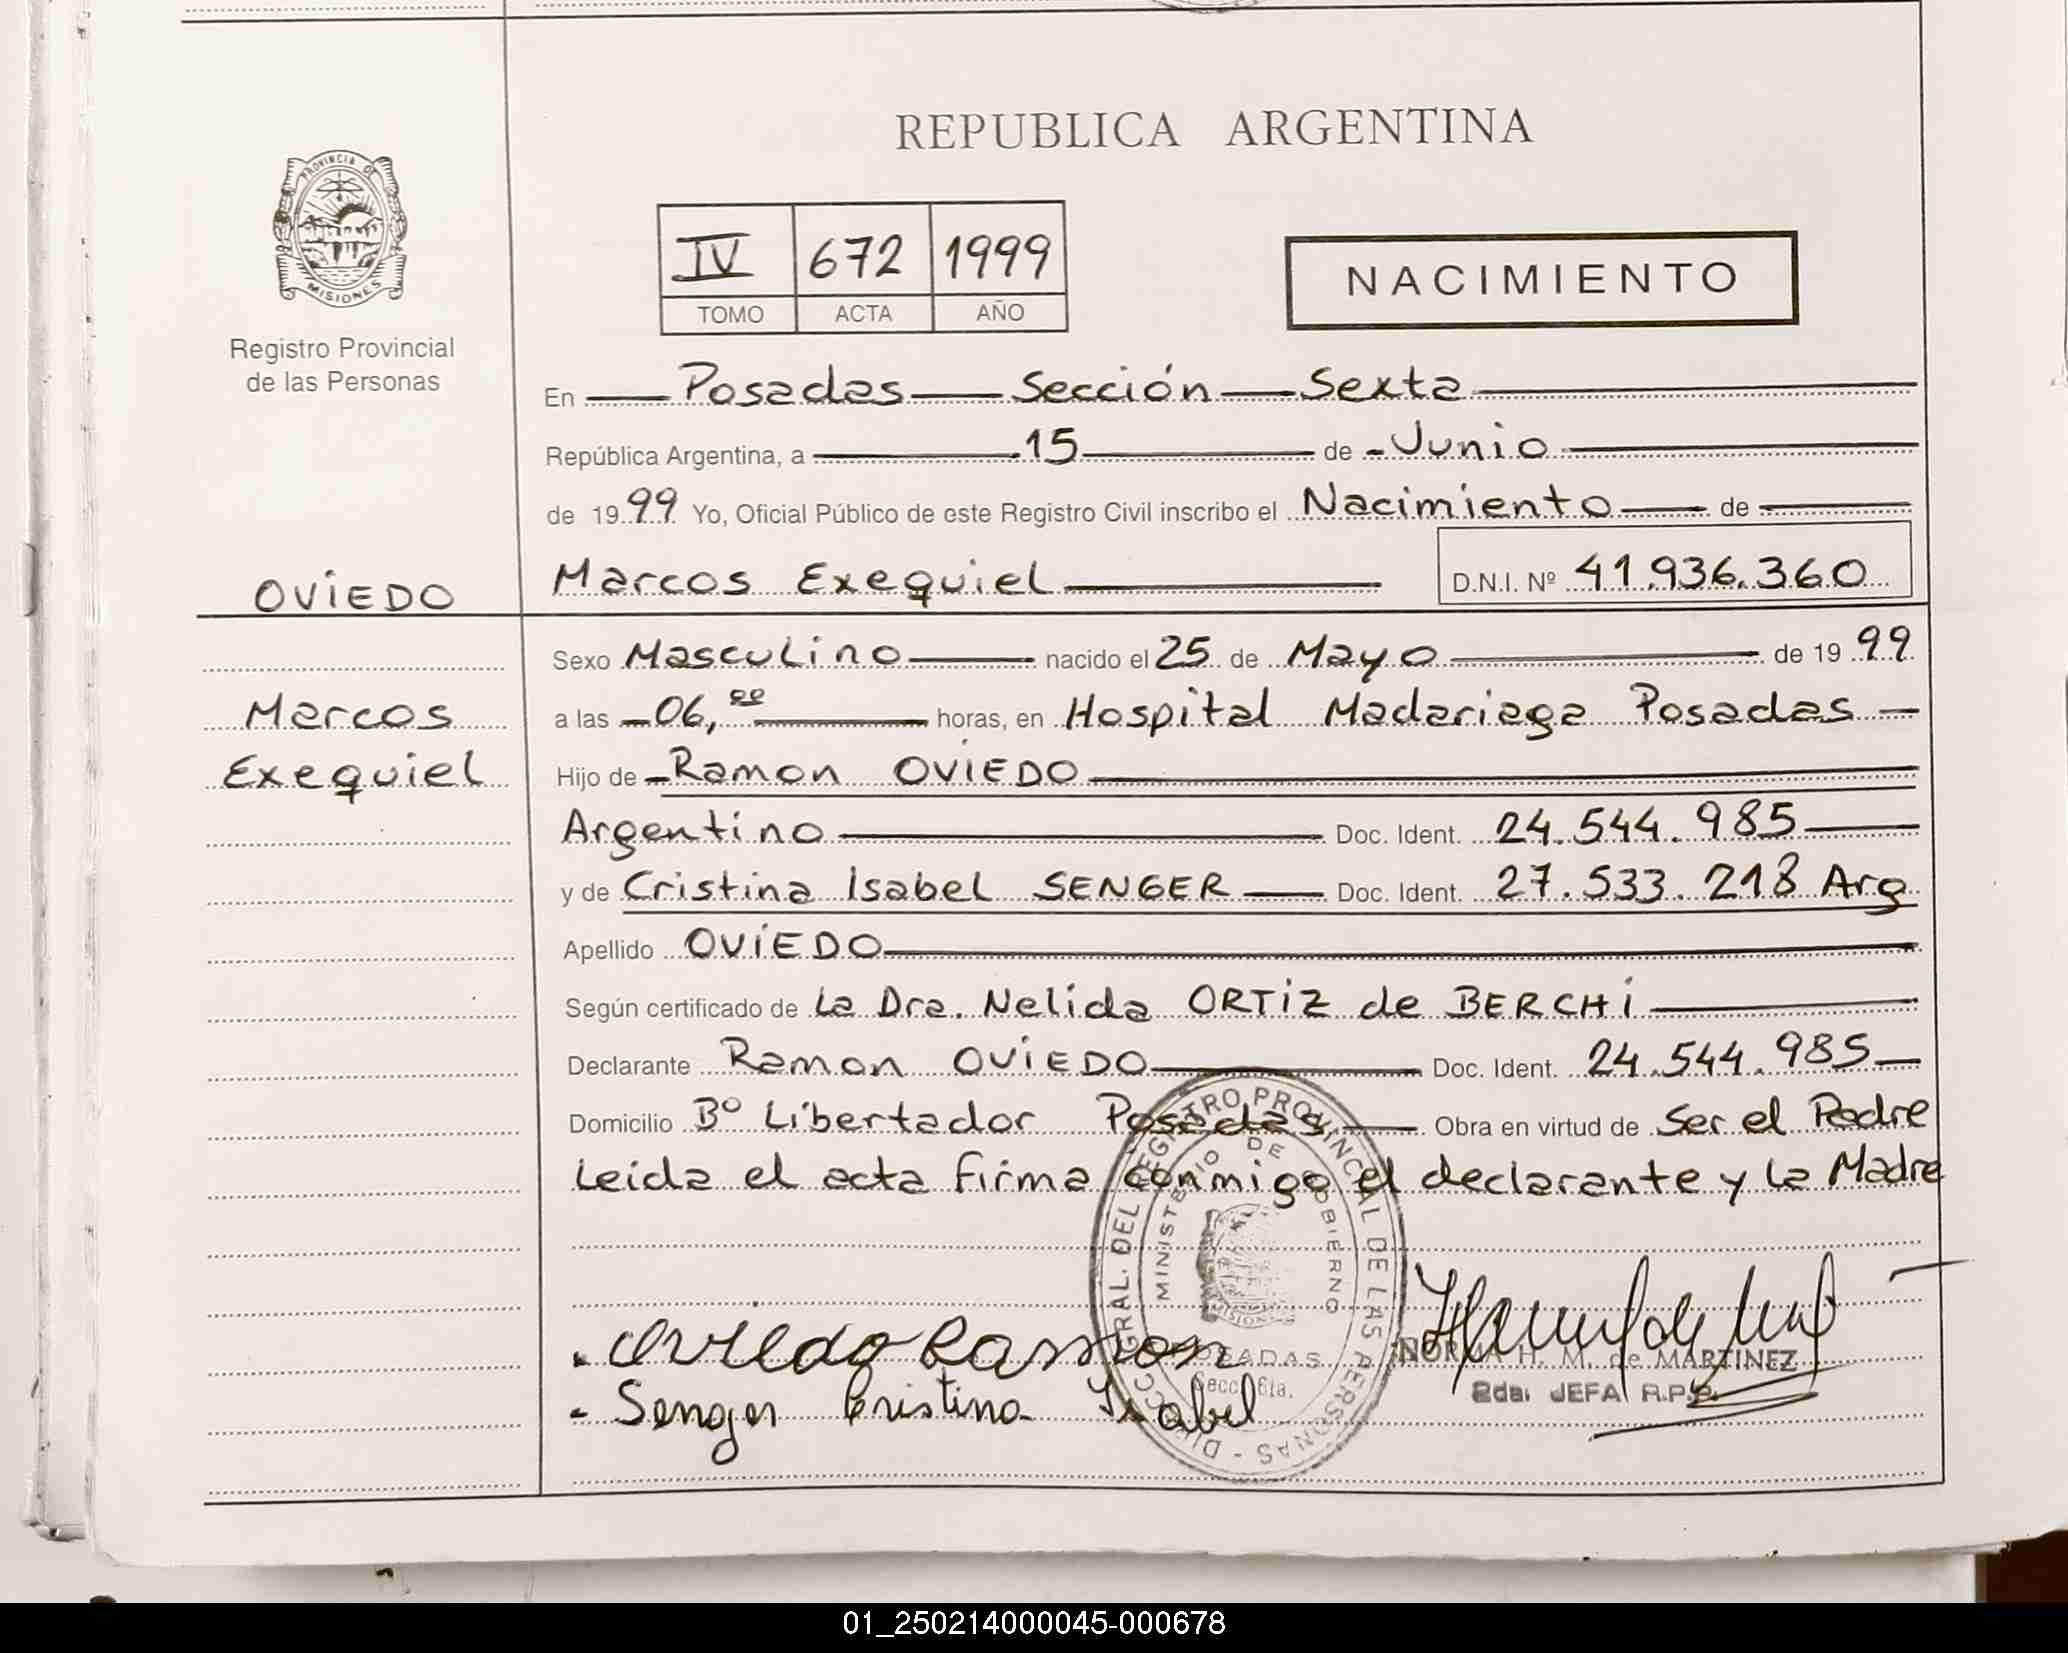 REPUBLICA ARGENTINA
PROVINCIA DE
MISIONES
Registro Provincial
de las Personas
IV 672 1999
TOMO ACTA AÑO
NACIMIENTO
En Posadas Sección Sexta
República Argentina, a 15 de Junio
de 1999 Yo, Oficial Público de este Registro Civil inscribo el Nacimiento de
OVIEDO
Marcos Exequiel D.N.I. Nº 41.936.360
Sexo Masculino nacido el 25 de Mayo de 1999
Marcos
a las 06,00 horas, en Hospital Madariaga Posadas
Exequiel
Hijo de Ramon OVIEDO
Argentino Doc. Ident. 24.544.985
y de Cristina Isabel SENGER Doc. Ident. 27.533.218 Arg
Apellido OVIEDO
Según certificado de La Dra. Nelida ORTIZ de BERCHI
Declarante Ramon OVIEDO Doc. Ident. 24.544.985
Domicilio Bº Libertador Posadas Obra en virtud de Ser el Padre
Leida el acta firma conmigo el declarante y la Madre
DIRECC. GRAL. DEL REGISTRO PROVINCIAL DE LAS PERSONAS -
MINISTERIO DE GOBIERNO
MISIONES
POSADAS
Secc. 6ta.
Oviedo Ramon
Senger Cristina Isabel
NORMA H. M. de MARTINEZ
2da. JEFA R.P.P.
01_250214000045-000678